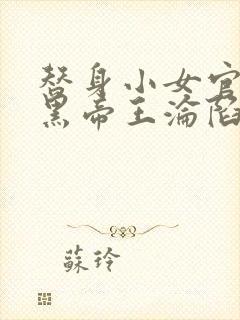 替身小女官
帝王淪陷
蘇玲